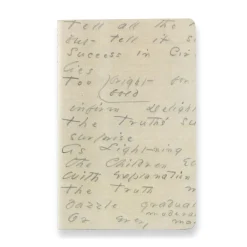 Tell all the
but tell it s
Success in Cir
Too bright for
bold
the Truth's su
surprise
As Lightning
the Children E
With explanation
the Truth m
Dazzle gradua
moderat
Or